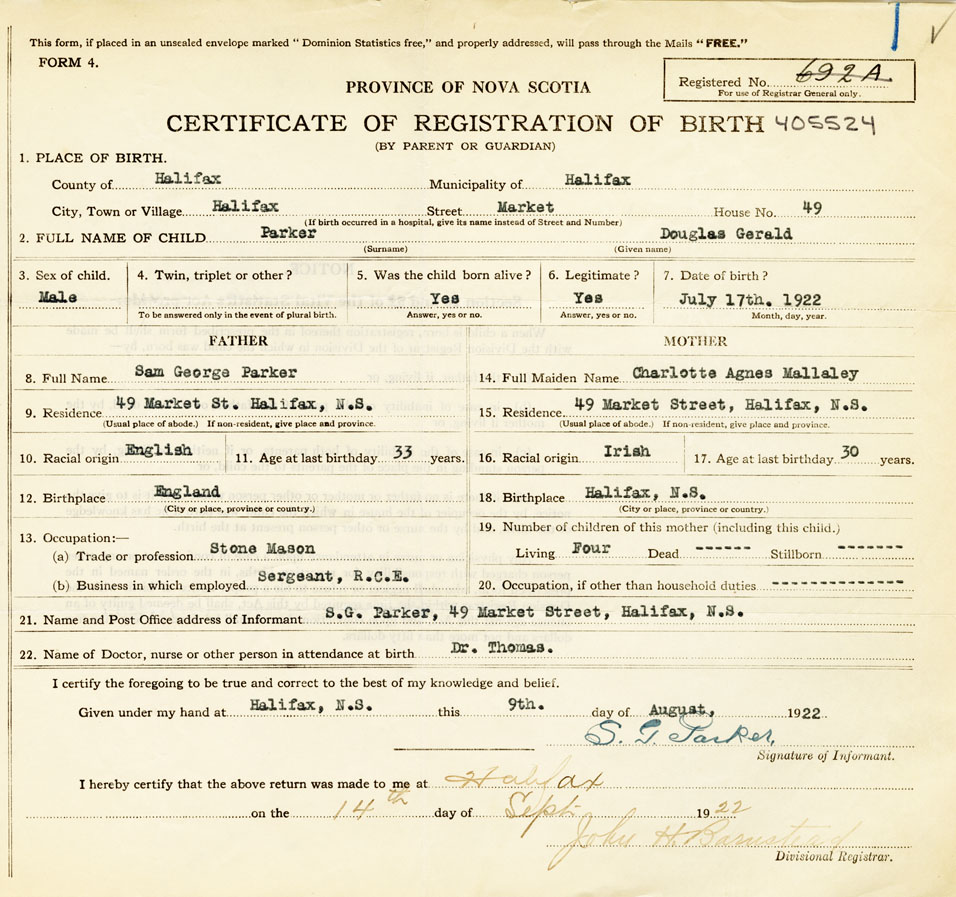 This form, if placed in an unsealed envelope marked "Dominion Statistics free," and properly addressed, will pass through the Mails "FREE."
FORM 4.
Registered No. 692 A.
For use of Registrar General only.
PROVINCE OF NOVA SCOTIA
CERTIFICATE OF REGISTRATION OF BIRTH 405524
(BY PARENT OR GUARDIAN)
1. PLACE OF BIRTH.
County of Halifax Municipality of Halifax
City, Town or Village Halifax Street Market House No. 49
(If birth occurred in a hospital, give its name instead of Street and Number)
2. FULL NAME OF CHILD Parker Douglas Gerald
(Surname) (Given name)
3. Sex of child. 4. Twin, triplet or other? 5. Was the child born alive? 6. Legitimate? 7. Date of birth?
Male Yes Yes July 17th. 1922
To be answered only in the event of plural birth. Answer, yes or no. Answer, yes or no. Month, day, year.
FATHER MOTHER
8. Full Name Sam George Parker 14. Full Maiden Name Charlotte Agnes Mallaley
9. Residence 49 Market St. Halifax, N.S. 15. Residence 49 Market Street, Halifax, N.S.
(Usual place of abode.) If non-resident, give place and province. (Usual place of abode.) If non-resident, give place and province.
10. Racial origin English 11. Age at last birthday 33 years. 16. Racial origin Irish 17. Age at last birthday 30 years.
12. Birthplace England 18. Birthplace Halifax, N.S.
(City or place, province or country.) (City or place, province or country.)
13. Occupation:— 19. Number of children of this mother (including this child.)
(a) Trade or profession Stone Mason Living Four Dead ------ Stillborn -------
(b) Business in which employed Sergeant, R.C.E. 20. Occupation, if other than household duties --------------
21. Name and Post Office address of Informant S.G. Parker, 49 Market Street, Halifax, N.S.
22. Name of Doctor, nurse or other person in attendance at birth Dr. Thomas.
I certify the foregoing to be true and correct to the best of my knowledge and belief.
Given under my hand at Halifax, N.S. this 9th. day of August, 1922
S. G. Parker,
Signature of Informant.
I hereby certify that the above return was made to me at Halifax
on the 14th day of Sept. 1922
John H. Barnstead
Divisional Registrar.